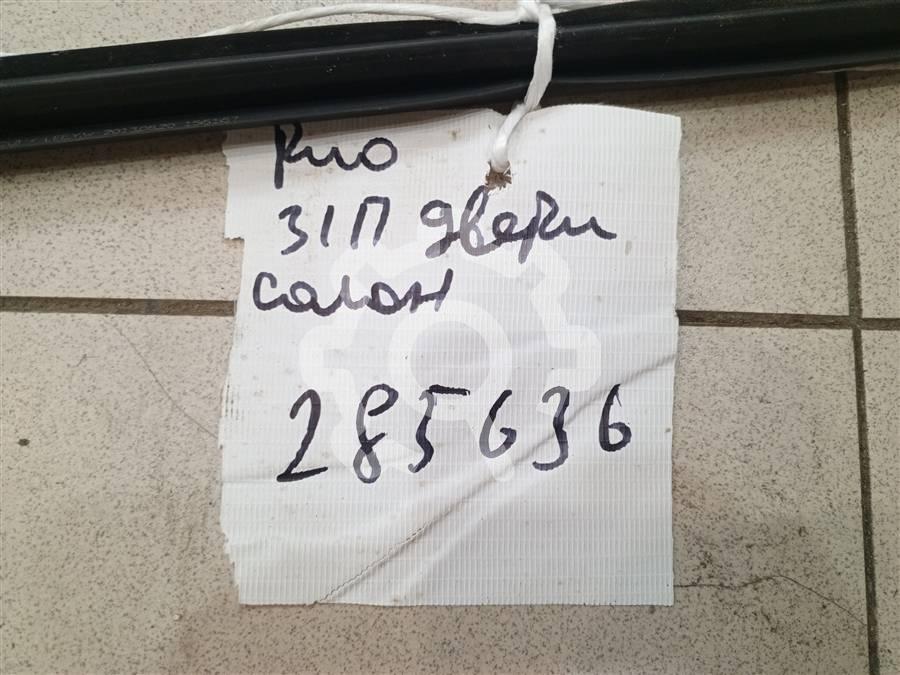 Рио
З/П двери
салон
285636